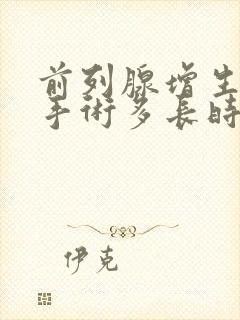 前列腺增生
手術多長時
伊克